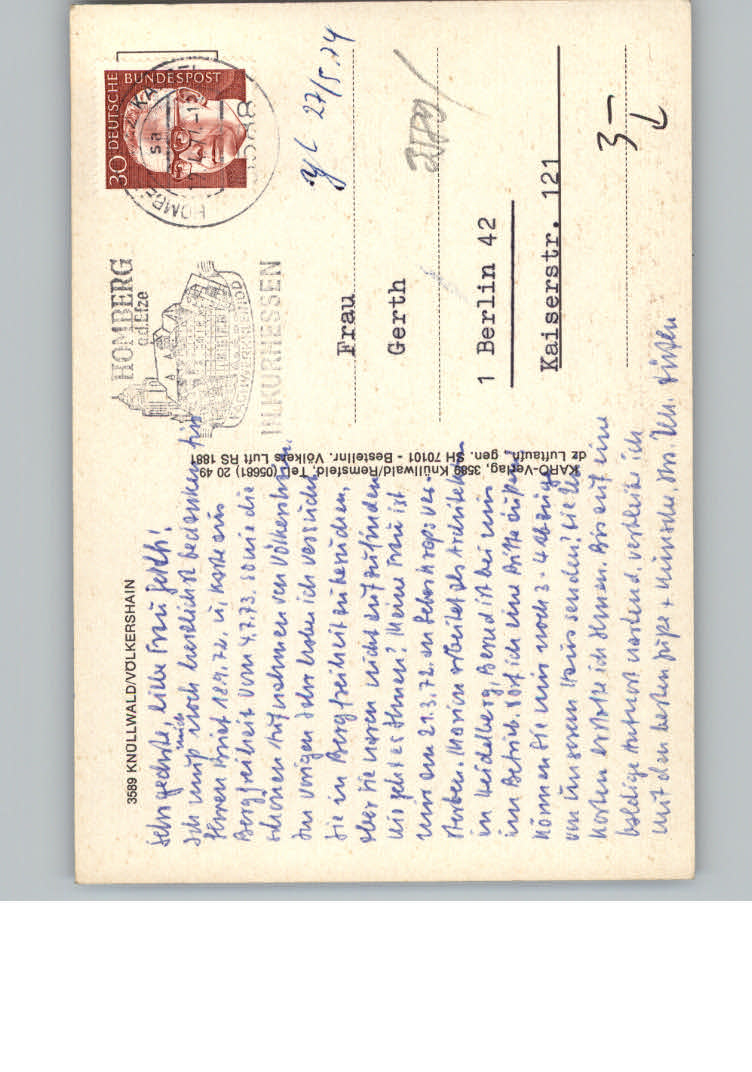 3589 KNÜLLWALD/VÖLKERSHAIN
Sehr geehrte, liebe Frau Gerth!
Ich muß mich noch herzlichst bedanken für
Ihren Brief 18.9.72. u. Karte aus
Bergfreiheit vom 4.7.73. sowie die
schönen Aufnahmen von Völkershain.
Im vorigen Jahr habe ich versucht
Sie in Bergfreiheit zu besuchen,
aber Sie waren nicht aufzufinden
Wie geht es Ihnen? Meine Frau ist
mir am 21.3.72. an ver-
storben. Marion arbeitet als
in Heidelberg, Bernd ist bei uns
im Betrieb. Darf ich eine Bitte äußern,
können Sie mir noch 3-4 Abzüge
von unserem Haus senden? Die
Kosten erstatte ich Ihnen. Bis auf eine
baldige Antwort wartend, verbleibe ich
mit den besten Grüßen + Wünschen, Ihr
KARO-Verlag, 3589 Knüllwald/Remsfeld, Tel. (05681) 20 49
dz Luftaufn. gen. SH 70101 - Bestellnr. Völkers Luft RS 1881
HOMBERG
a.d. Efze
FACHWERKKLEINOD
IN KURHESSEN
30 DEUTSCHE BUNDESPOST
3588 HOMBERG
sa
27/5.74
Frau
Gerth
1 Berlin 42
Kaiserstr. 121
3-